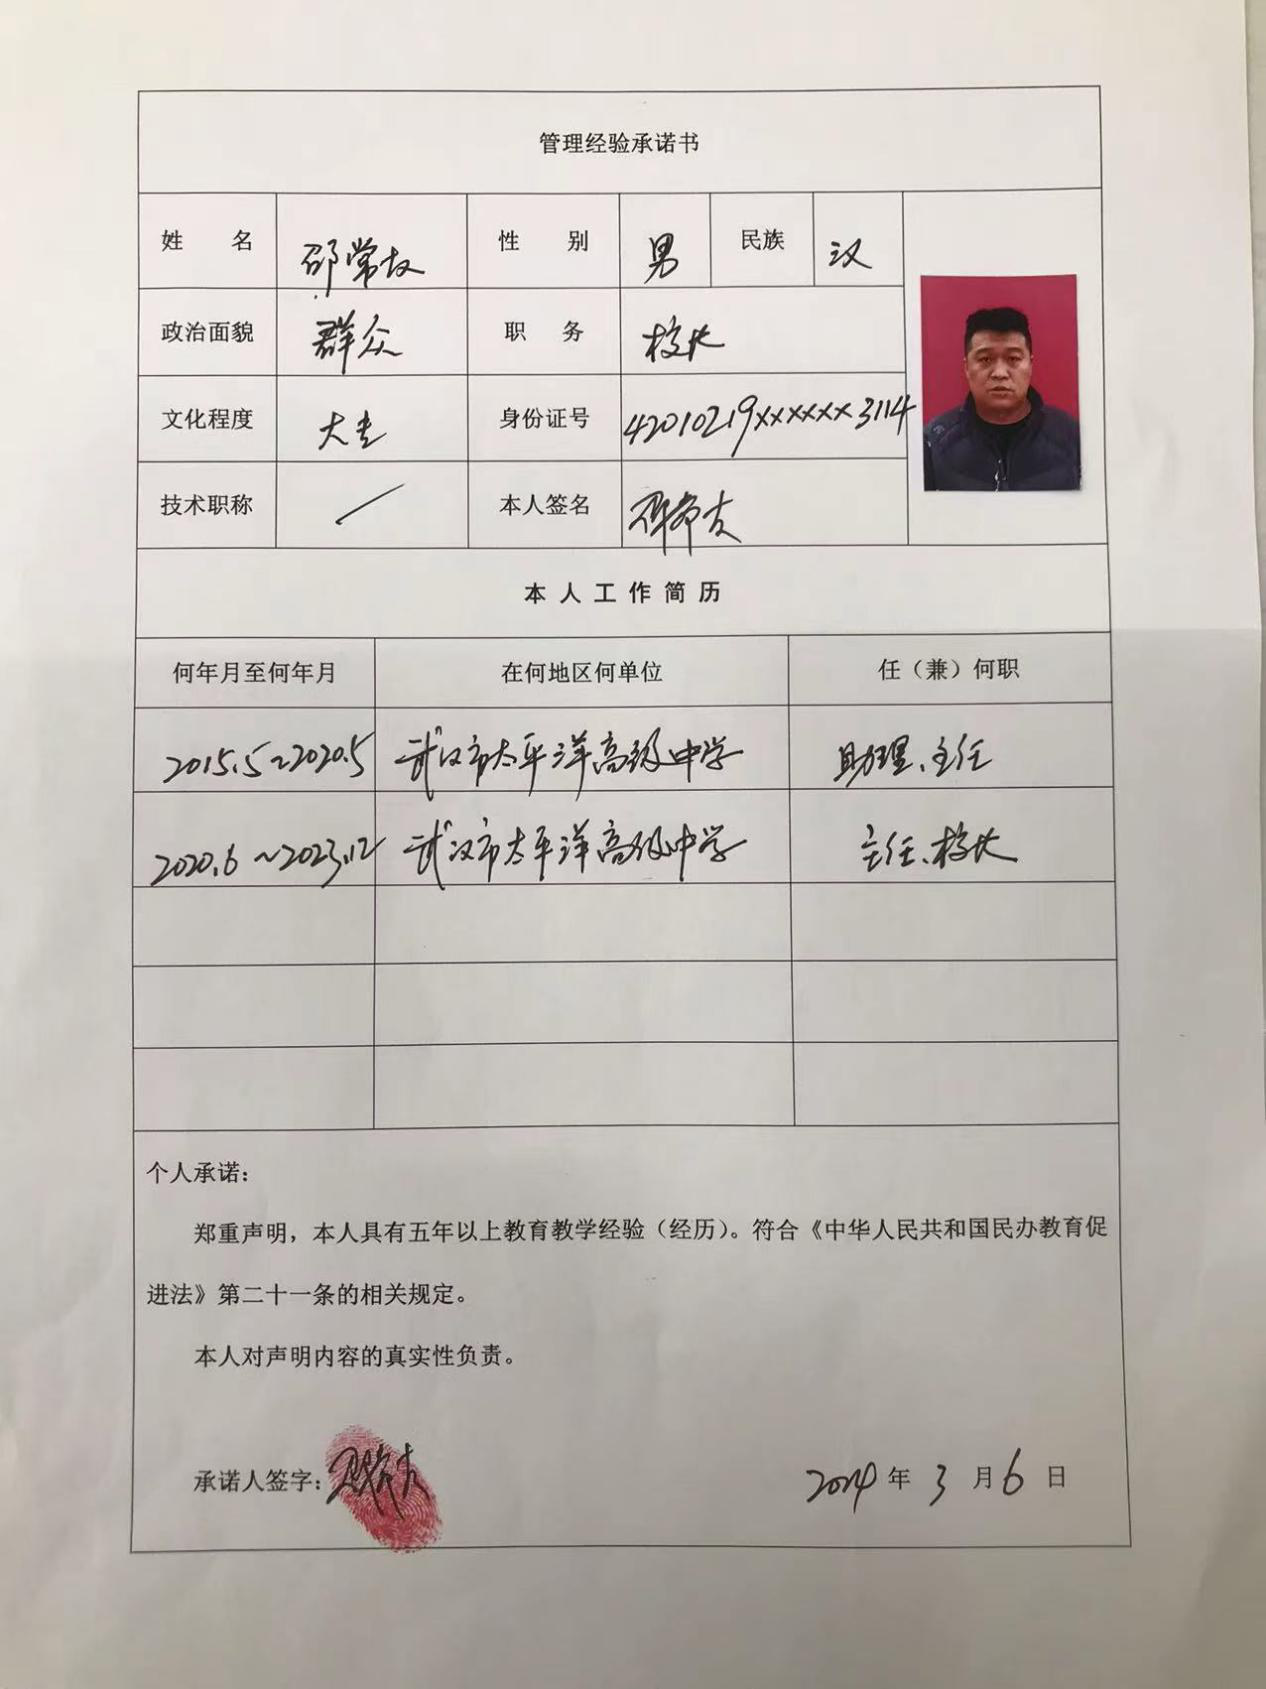 管理经验承诺书
姓 名 邵常 性 别 男 民族 汉
政治面貌 群众 职 务 校长
文化程度 大专 身份证号 42010219xxxxxx3114
技术职称 / 本人签名
本人工作简历
何年月至何年月 在何地区何单位 任（兼）何职
2015.5~2020.5 武汉市太平洋高级中学 助理、主任
2020.6~2023.12 武汉市太平洋高级中学 主任、校长
个人承诺：
郑重声明，本人具有五年以上教育教学经验（经历）。符合《中华人民共和国民办教育促
进法》第二十一条的相关规定。
本人对声明内容的真实性负责。
承诺人签字： 2024年3月6日